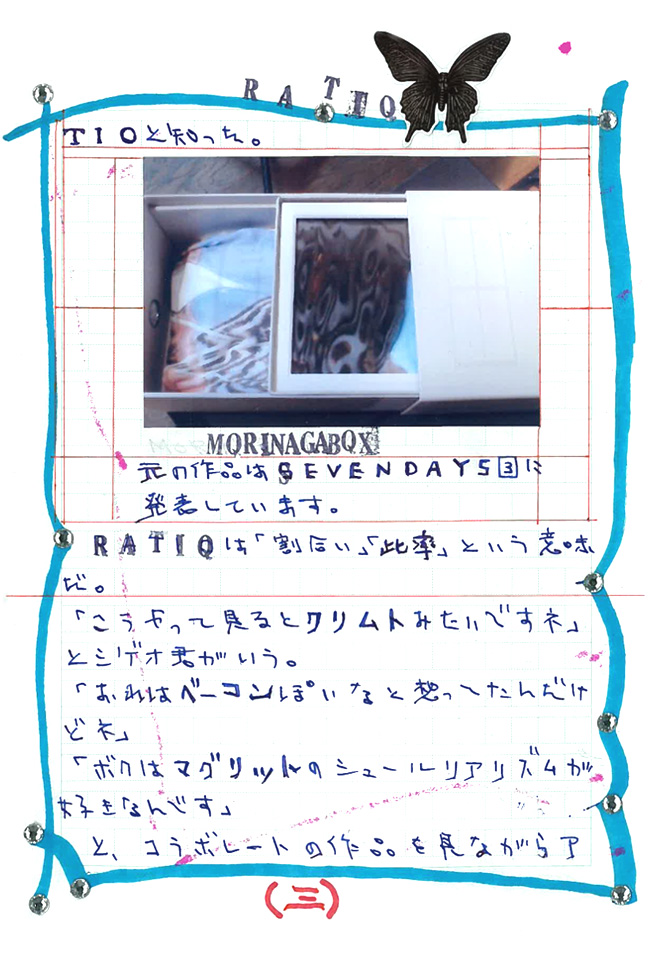 RATIO
TIOと知った。
MORINAGABOX
元の作品はSEVENDAYS3に
発表しています。
RATIOは「割合い」「比率」という意味
だ。
「こうやって見るとクリムトみたいですネ」
とシゲオ君がいう。
「おれはベーコンぽいなと想ってたんだけ
どネ」
「ボクはマグリットのシュールリアリズムが
好きなんです」
と、コラボレートの作品を見ながらア
(三)